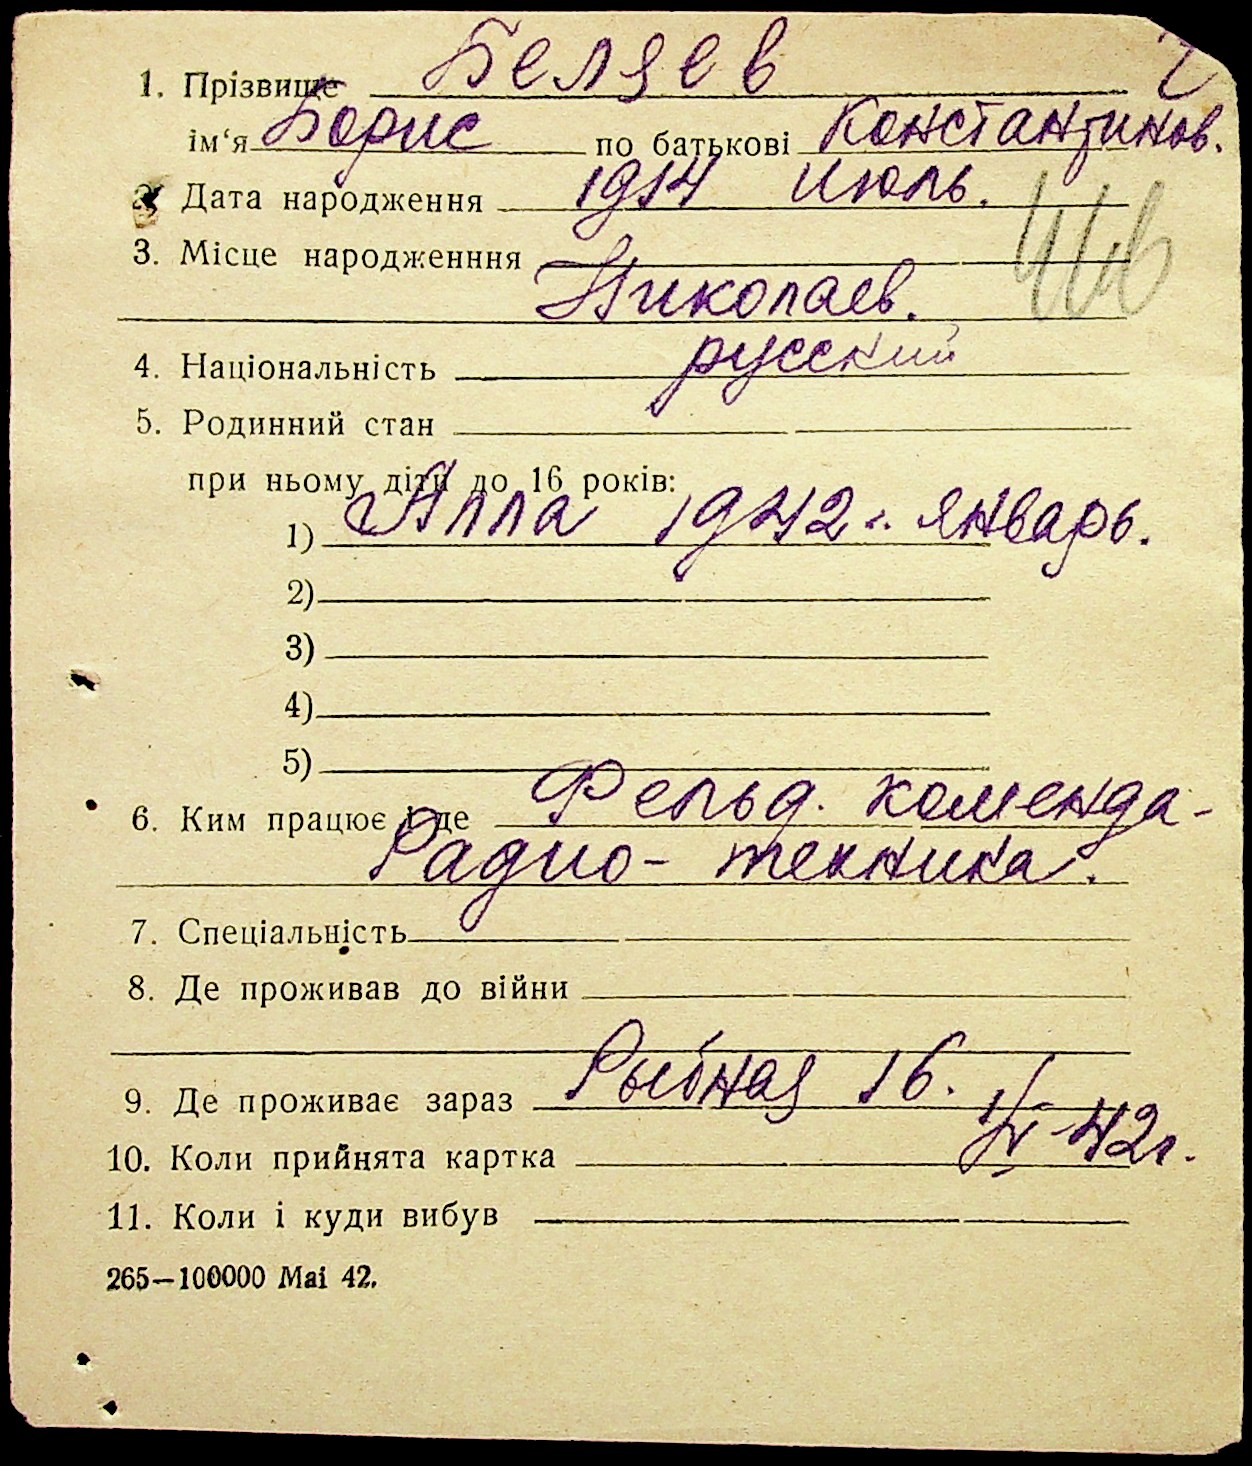 1. Прізвище Беляев
ім‘я Борис по батькові Константинов.
2. Дата народження 1914 июль.
3. Місце народженння
Николаев.
4. Національність русский
5. Родинний стан
при ньому діти до 16 років:
1) Алла 1942 г. январь.
2)
3)
4)
5)
6. Ким працює і де Фельд. коменда-
Радио- техника.
7. Спеціальність
8. Де проживав до війни
9. Де проживає зараз Рыбная 16.
10. Коли прийнята картка 1/VI-42г.
11. Коли і куди вибув
265—100000 Mai 42.